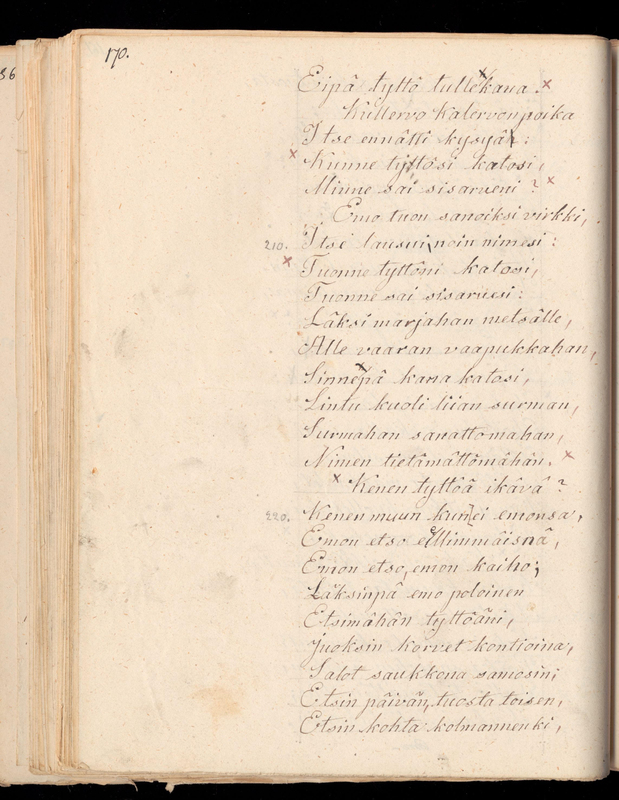 170.
36
Eipä tyttö tullekana.
Kullervo Kalervon poika
Itse ennätti kysyä:
Kunne tyttösi katosi,
Minne sai sisarueni?
Emo tuon sanoiksi virkki,
210. Itse lausui, noin nimesi:
Tuonne tyttöni katosi,
Tuonne sai sisaruesi:
Läksi marjahan metsälle,
Alle vaaran vaapukkahan,
Sinnepä kana katosi,
Lintu kuoli liian surman,
Surmahan sanattomahan,
Nimen tietämättömähän.
Kenen tyttöä ikävä?
220. Kenen muun kun ei emonsa,
Emon etso ellimmäisnä,
Emon etso, emon kaiho;
Läksinpä emo poloinen
Etsimähän tyttöäni,
Juoksin korvet kontioina,
Salot saukkona samosin;
Etsin päivän, tuosta toisen,
Etsin kohta kolmannenki,